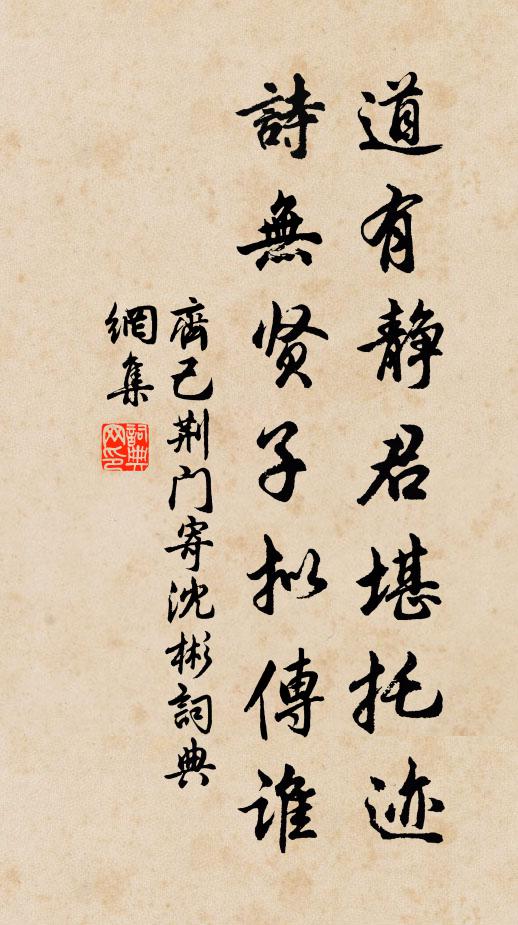 道有静君堪托迹
詩無贤子拟傳谁
齊己荆门寄沈彬詞典
網集
詞典
网印